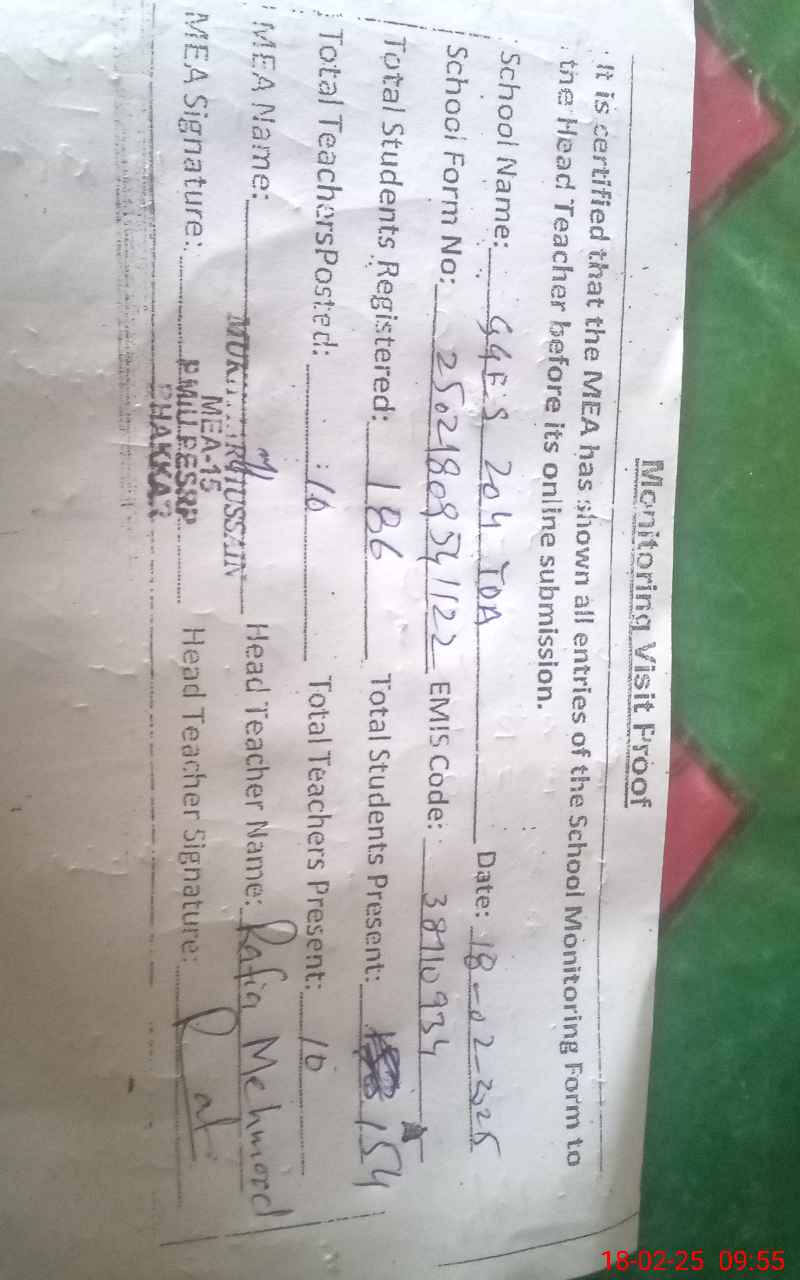 Monitoring Visit Proof
It is certified that the MEA has shown all entries of the School Monitoring Form to
the Head Teacher before its online submission.
School Name: GGES 204 TDA Date: 18-02-2025
School Form No: 25021809541122 EMIS Code: 38110934
Total Students Registered: 186 Total Students Present: 154
Total Teachers Posted: 10 Total Teachers Present: 10
MEA Name: HUSSAIN Head Teacher Name: Rafia Mehmood
MEA-15
MEA Signature: PMIU PESRP Head Teacher Signature:
BHAKKAR
18-02-25 09:55